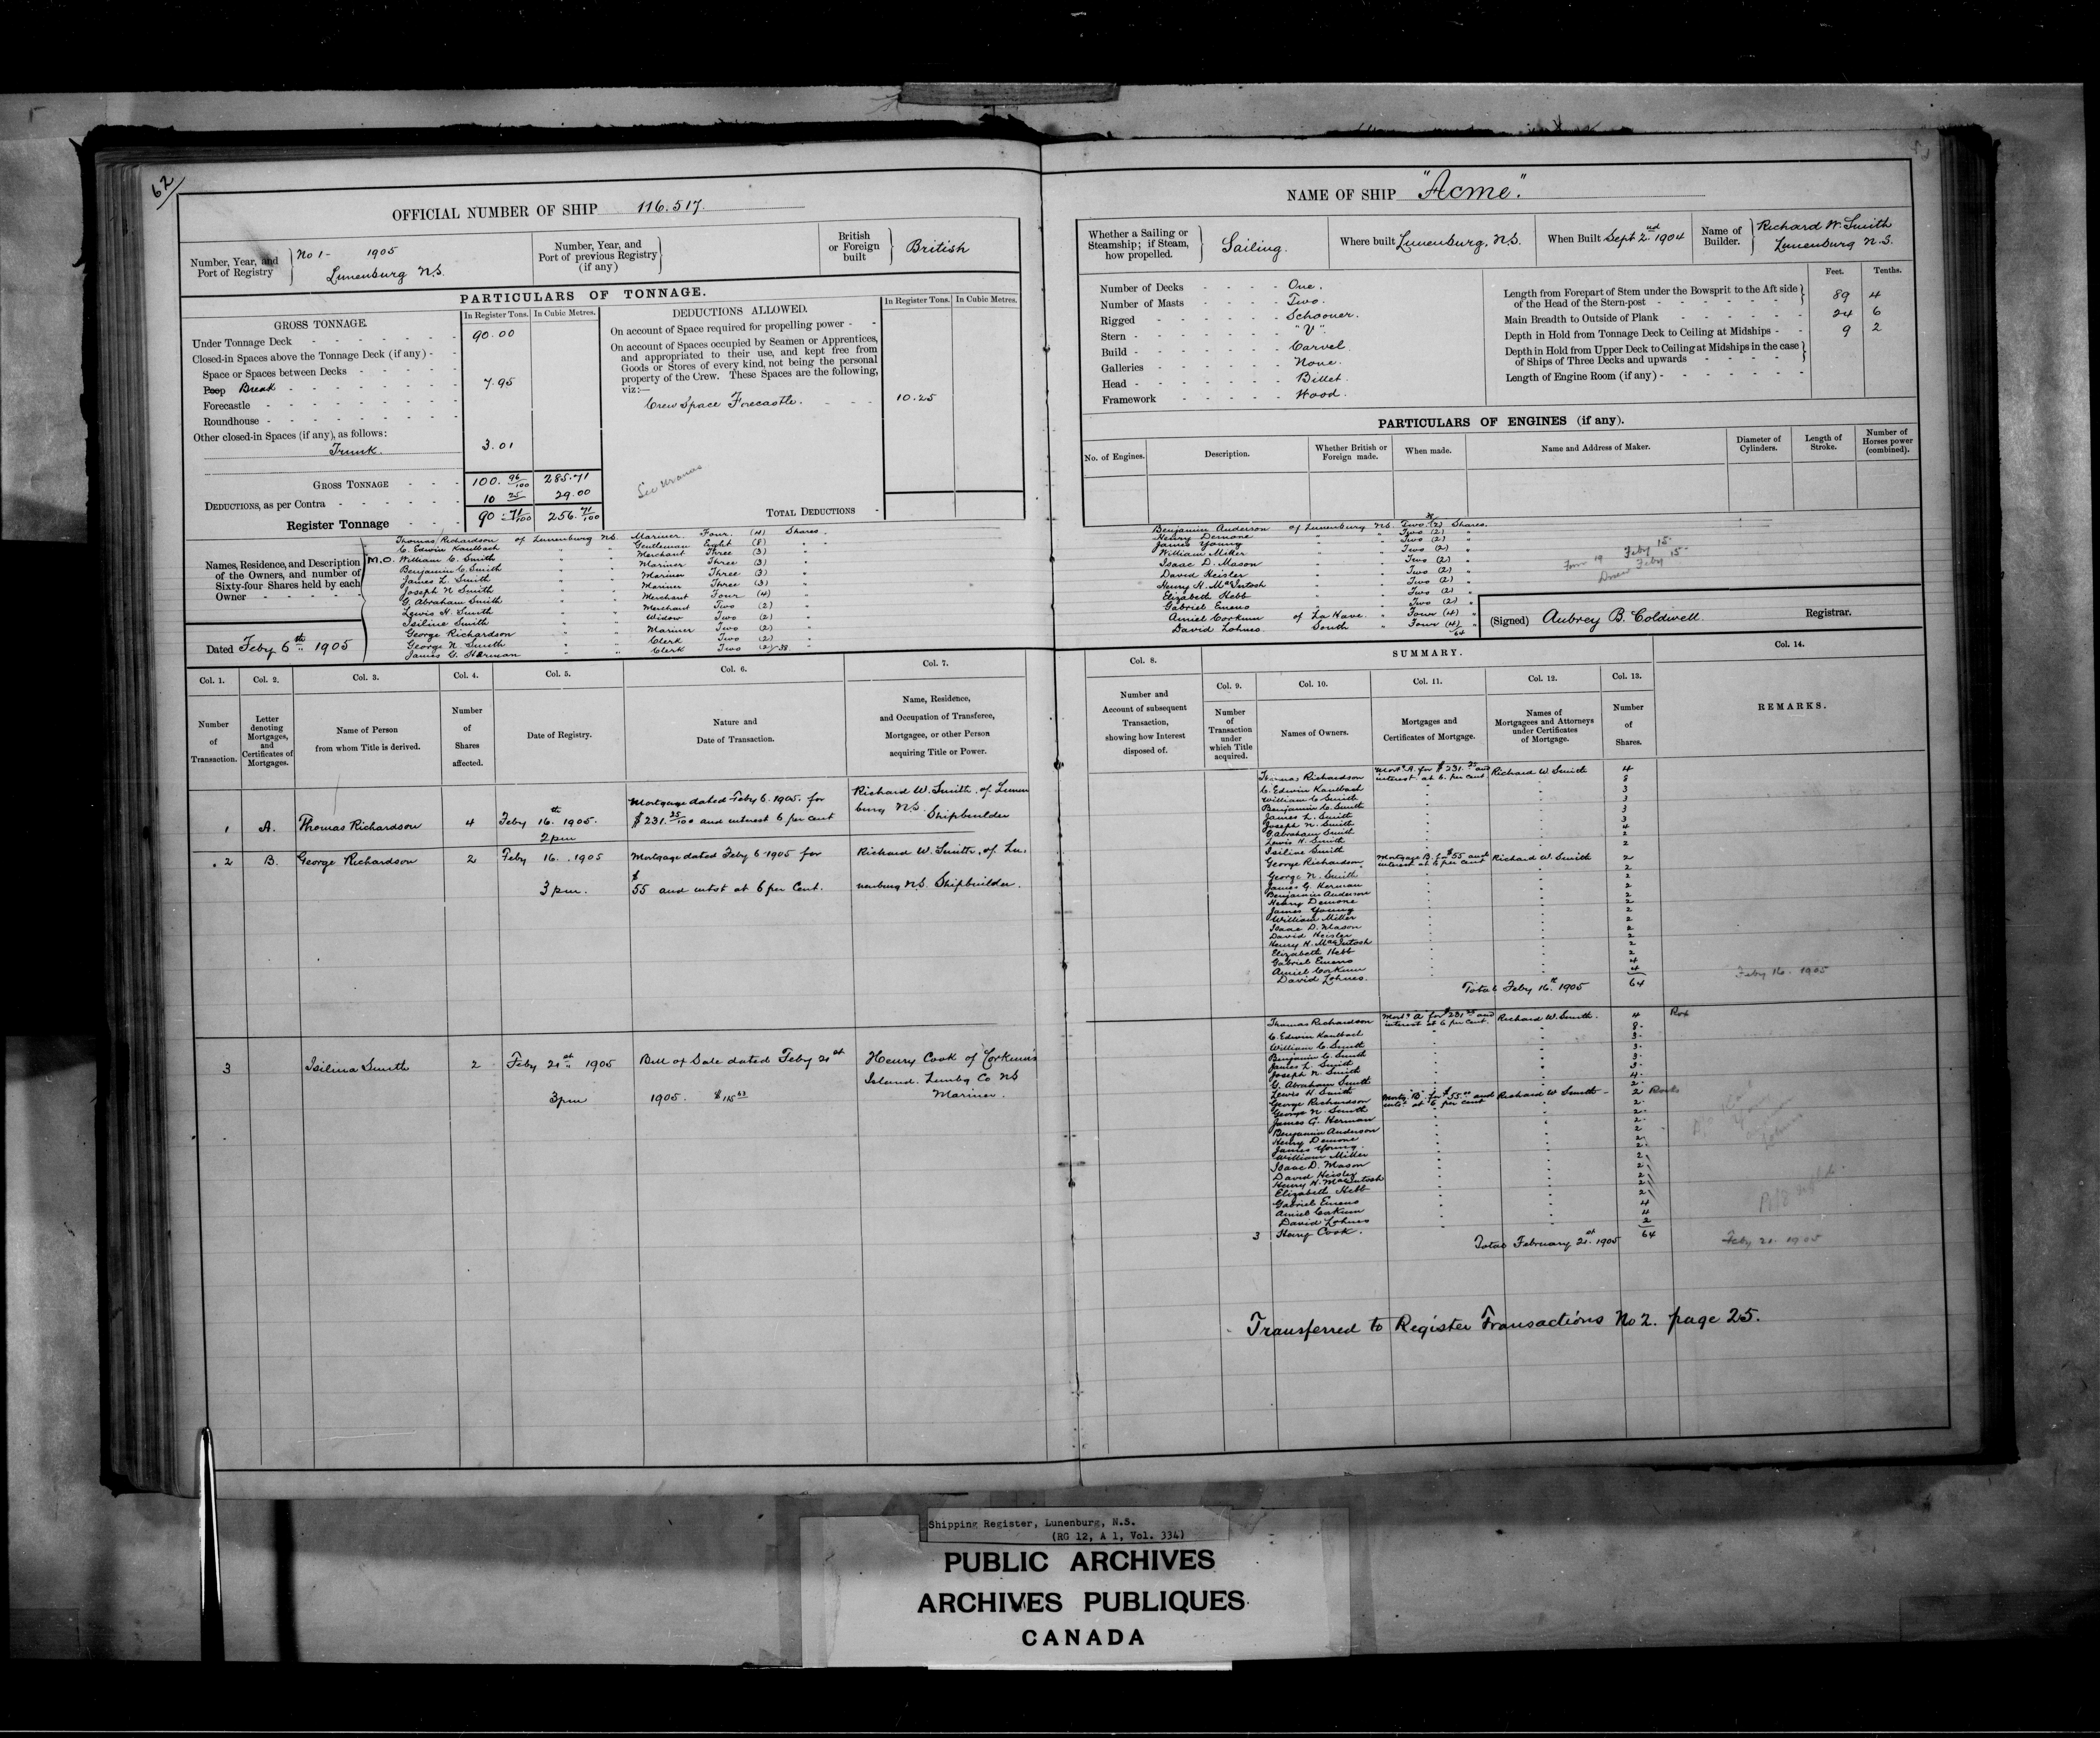 62
OFFICIAL NUMBER OF SHIP 116.517.
Number, Year, and Port of Registry No 1 - 1905
Lunenburg N.S.
Number, Year, and Port of previous Registry (if any)
British or Foreign built British
PARTICULARS OF TONNAGE.
GROSS TONNAGE.
In Register Tons. In Cubic Metres.
Under Tonnage Deck 90.00
Closed-in Spaces above the Tonnage Deck (if any) -
Space or Spaces between Decks
Poop Break 7.95
Forecastle
Roundhouse
Other closed-in Spaces (if any), as follows:
Trunk. 3.01
GROSS TONNAGE 100. 96/100 285.71
DEDUCTIONS, as per Contra 10 25 29.00
Register Tonnage 90 - 71/100 256. 71/100
DEDUCTIONS ALLOWED.
In Register Tons. In Cubic Metres.
On account of Space required for propelling power -
On account of Spaces occupied by Seamen or Apprentices,
and appropriated to their use, and kept free from
Goods or Stores of every kind, not being the personal
property of the Crew. These Spaces are the following,
viz:—
Crew Space Forecastle. 10.25
TOTAL DEDUCTIONS
Names, Residence, and Description
of the Owners, and number of
Sixty-four Shares held by each
Owner
Thomas Richardson of Lunenburg N.S. Mariner Four (4) Shares.
C. Edwin Kaulbach " " Gentleman Eight (8) "
M.O. William C. Smith " " Merchant Three (3) "
Benjamin C. Smith " " Mariner Three (3) "
James L. Smith " " Mariner Three (3) "
Joseph N Smith " " Mariner Three (3) "
G. Abraham Smith " " Merchant Four (4) "
Lewis H. Smith " " Merchant Two (2) "
Isiline Smith " " Widow Two (2) "
George Richardson " " Mariner Two (2) "
George N. Smith " " Clerk Two (2) "
James G. Herman " " Clerk Two (2) 38 "
Dated Feby 6th 1905
NAME OF SHIP "Acme".
Whether a Sailing or Steamship; if Steam, how propelled. Sailing.
Where built Lunenburg, N.S.
When Built Sept 2nd 1904
Name of Builder. Richard W. Smith
Lunenburg N.S.
Number of Decks One.
Number of Masts Two.
Rigged Schooner.
Stern "V".
Build Carvel.
Galleries None.
Head Billet.
Framework Wood.
Feet. Tenths.
Length from Forepart of Stem under the Bowsprit to the Aft side
of the Head of the Stern-post 89 4
Main Breadth to Outside of Plank 24 6
Depth in Hold from Tonnage Deck to Ceiling at Midships 9 2
Depth in Hold from Upper Deck to Ceiling at Midships in the case
of Ships of Three Decks and upwards
Length of Engine Room (if any)
PARTICULARS OF ENGINES (if any).
No. of Engines. Description. Whether British or Foreign made. When made. Name and Address of Maker. Diameter of Cylinders. Length of Stroke. Number of Horses power (combined).
Benjamin Anderson of Lunenburg N.S. Two (2) Shares.
Henry Demone " " Two (2) "
James Young " " Two (2) "
William Miller " " Two (2) "
Isaac D. Mason " " Two (2) "
David Heisler " " Two (2) "
Henry H. MacIntosh " " Two (2) "
Elizabeth Hebb " " Two (2) "
Gabriel Emeno " " Two (2) "
Amiel Corkum of La Have " Four (4) "
David Lohnes South " Four (4) "
64
Feby 15
Feby 15
(Signed) Aubrey B. Coldwell Registrar.
Col. 1. Col. 2. Col. 3. Col. 4. Col. 5. Col. 6. Col. 7.
Number of Transaction.
Letter denoting Mortgages, and Certificates of Mortgages.
Name of Person from whom Title is derived.
Number of Shares affected.
Date of Registry.
Nature and Date of Transaction.
Name, Residence, and Occupation of Transferee, Mortgagee, or other Person acquiring Title or Power.
1 A. Thomas Richardson 4 Feby 16th 1905. 2 pm
Mortgage dated Feby 6. 1905. for
$231. 25/100 and interest 6 per cent
Richard W. Smith, of Lunen
burg N.S. Shipbuilder
2 B. George Richardson 2 Feby 16. 1905 3 pm.
Mortgage dated Feby 6 1905 for
$55 and intst at 6 per Cent.
Richard W. Smith, of Lu.
nenburg N.S. Shipbuilder.
3 Isilina Smith 2 Feby 21st 1905 3 pm
Bill of Sale dated Feby 21st
1905.
Henry Cook of Corkum's
Island. Lunbg Co NS
Mariner.
SUMMARY.
Col. 8. Col. 9. Col. 10. Col. 11. Col. 12. Col. 13. Col. 14.
Number and Account of subsequent Transaction, showing how Interest disposed of.
Number of Transaction under which Title acquired.
Names of Owners.
Mortgages and Certificates of Mortgage.
Names of Mortgagees and Attorneys under Certificates of Mortgage.
Number of Shares.
REMARKS.
Thomas Richardson Mortg A. for $231. 25 and interest at 6. per cent Richard W. Smith 4
C. Edwin Kaulbach 8
William C Smith 3
Benjamin C. Smith 3
James L. Smith 3
Joseph N. Smith 3
G Abraham Smith 4
Lewis H. Smith 2
Isiline Smith 2
George Richardson Mortgage B. for $55 and interest at 6 per cent Richard W. Smith 2
George N. Smith 2
James G. Herman 2
Benjamin Anderson 2
Henry Demone 2
James Young 2
William Miller 2
Isaac D. Mason 2
David Heisler 2
Henry H. MacIntosh 2
Elizabeth Hebb 2
Gabriel Emeno 2
Amiel Corkum 4
David Lohnes. 4
Total Feby 16th 1905 64
Feby 16. 1905
Thomas Richardson Mortg A for $231 25 and interest at 6 per cent. Richard W. Smith. 4
C. Edwin Kaulbach 8
William C. Smith 3
Benjamin C. Smith 3
James L. Smith 3
Joseph N. Smith 3
G. Abraham Smith 4
Lewis H Smith 2
George Richardson Mortg "B" for $55.00 and intst at 6 per cent Richard W Smith 2
George N. Smith 2
James G. Herman 2
Benjamin Anderson 2
Henry Demone 2
James Young. 2
William Miller 2
Isaac D. Mason 2
David Heisler 2
Henry H. MacIntosh 2
Elizabeth Hebb 2
Gabriel Emeno 2
Amiel Corkum 4
David Lohnes 4
3 Henry Cook. 2
Total February 21st 1905 64
Feby 21. 1905
Transferred to Register Transactions No 2. page 25.
Shipping Register, Lunenburg, N.S.
(RG 12, A 1, Vol. 334)
PUBLIC ARCHIVES
ARCHIVES PUBLIQUES
CANADA